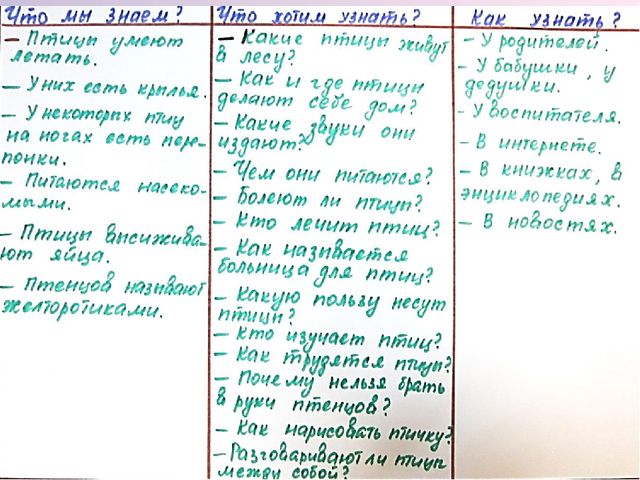 Что мы знаем?
– Птицы умеют
летать.
– У них есть крылья.
– У некоторых птиц
на ногах есть пере-
понки.
– Питаются насеко-
мыми.
– Птицы высижива-
ют яйца.
– Птенцов называют
желторотиками.
Что хотим узнать?
– Какие птицы живут
в лесу?
– Как и где птицы
делают себе дом?
– Какие звуки они
издают?
– Чем они питаются?
– Болеют ли птицы?
– Кто лечит птиц?
– Как называется
больница для птиц?
– Какую пользу несут
птицы?
– Кто изучает птиц?
– Как трудятся птицы?
– Почему нельзя брать
в руки птенцов?
– Как нарисовать птичку?
– Разговаривают ли птицы
между собой?
Как узнать?
– У родителей.
– У бабушки, у
дедушки.
– У воспитателя.
– В интернете.
– В книжках, в
энциклопедиях.
– В новостях.